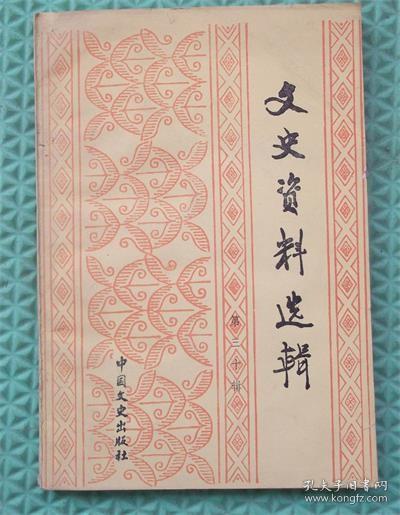 文史资料选辑
第三十辑
中国文史出版社
孔夫子旧书网
www.kongfz.com